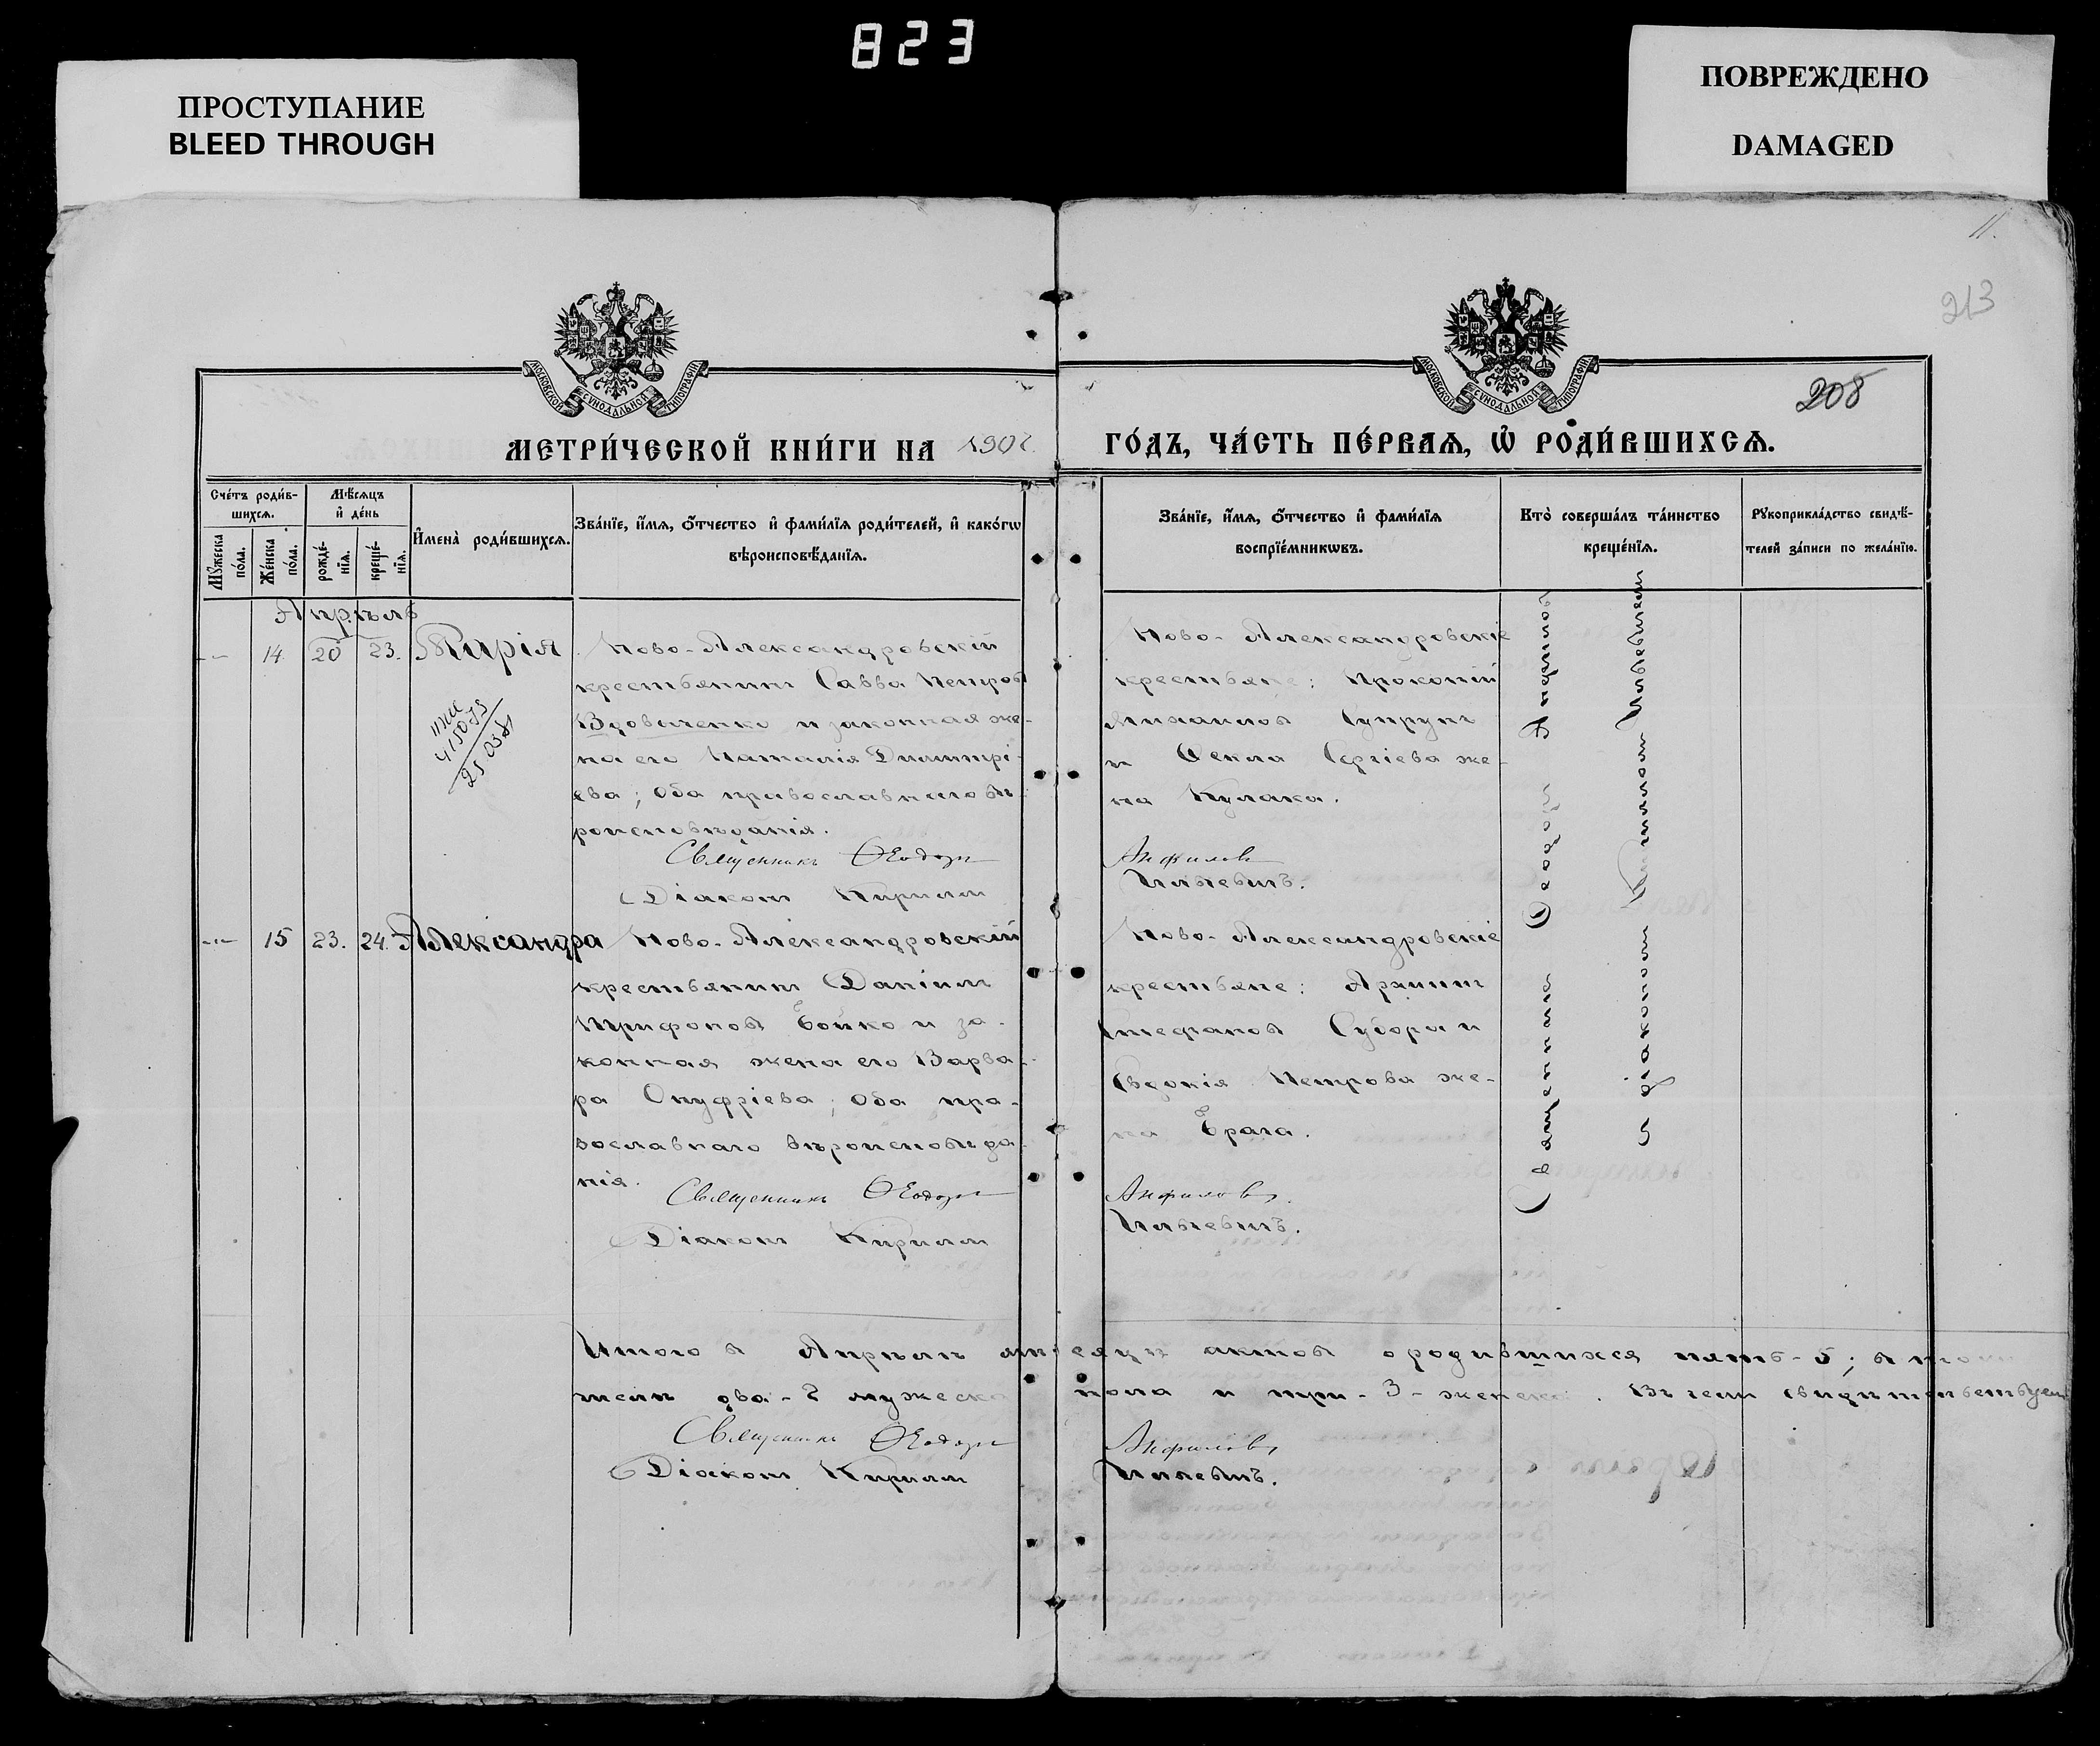 823
ПРОСТУПАНИЕ
BLEED THROUGH
ПОВРЕЖДЕНО
DAMAGED
11.
213
208
МОСКОВСКОЙ СУНОДАЛЬНОЙ ТИПОГРАФІИ
МОСКОВСКОЙ СУНОДАЛЬНОЙ ТИПОГРАФІИ
МЕТРИ́ЧЕСКОЙ КНИ́ГИ НА 190
ГО́ДЪ, ЧА́СТЬ ПЕ́РВАѦ, Ѡ҆ РОДИ́ВШИХСѦ.
Сче́тъ роди́в-
шихсѧ.
Мꙋ́жеска по́ла.
Же́нска по́ла.
Мѣ́сѧцъ
и҆ де́нь
рожде́-
нїѧ.
креще́-
нїѧ.
И҆мена̀ роди́вшихсѧ.
Зва́нїе, и҆́мѧ, ѻ҆́тчество и҆ фами́лїѧ роди́телей, и҆ како́гѡ
вѣроисповѣ́данїѧ.
Зва́нїе, и҆́мѧ, ѻ҆́тчество и҆ фами́лїѧ
воспрїе́мникѡвъ.
Кто̀ соверша́лъ та́инство
креще́нїѧ.
Рꙋкоприкла́дство свидѣ́-
телей за́писи по жела́нїю.
Апрѣль
— 14. 20 23. Марія
Ново-Александровскій
крестьянинъ Савва Петровъ
Вдовиченко и законная же-
на его Наталія Димитрі-
ева; оба православнаго вѣ-
роисповѣданія.
Священникъ Ѳеодоръ
Діаконъ Кириллъ
Ново-Александровскіе
крестьяне: Прокопій
Михаиловъ Супрунъ
и Ѳекла Сергіева же-
на Кулака.
Анфиловъ
Ильевичъ.
Священникъ Ѳеодоръ Анфиловъ
и діаконъ Кириллъ Ильевичъ
— 15 23. 24. Александра
Ново-Александровскій
крестьянинъ Даніилъ
Трифоновъ Бойко и за-
конная жена его Варва-
ра Онуфріева; оба пра-
вославнаго вѣроисповѣда-
нія.
Священникъ Ѳеодоръ
Діаконъ Кириллъ
Ново-Александровскіе
крестьяне:
Стефановъ и
Евдокія Петрова же-
на
Анфиловъ.
Ильевичъ.
Итого въ Апрѣлѣ мѣсяцѣ актовъ о родившихся пять-5; въ томъ
числѣ два-2 мужеска пола и три-3-женска. Въ чемъ свидѣтельствуемъ
Священникъ Ѳеодоръ Анфиловъ
Діаконъ Кириллъ Ильевичъ.